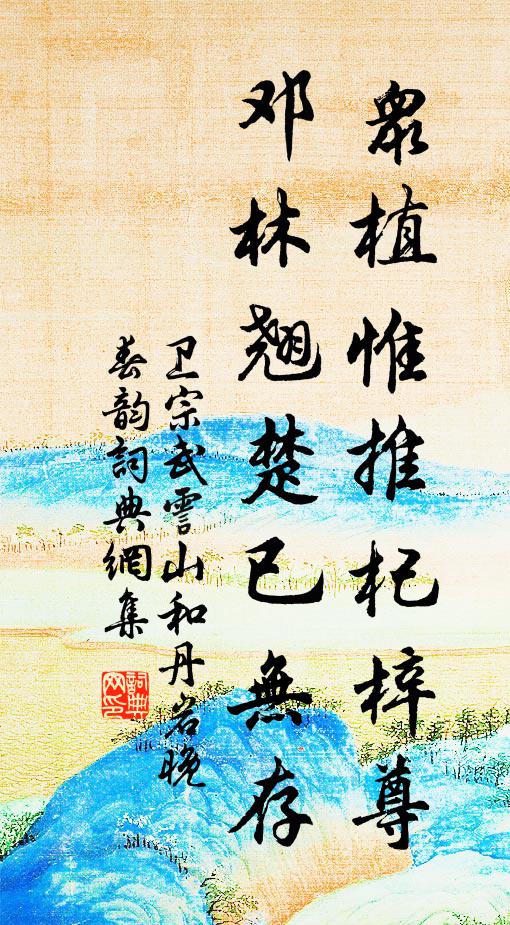 眾植惟推杞梓尊
邓林翘楚已無存
卫宗武霅山和丹岩晚
春韵詞典網集
詞典
网印